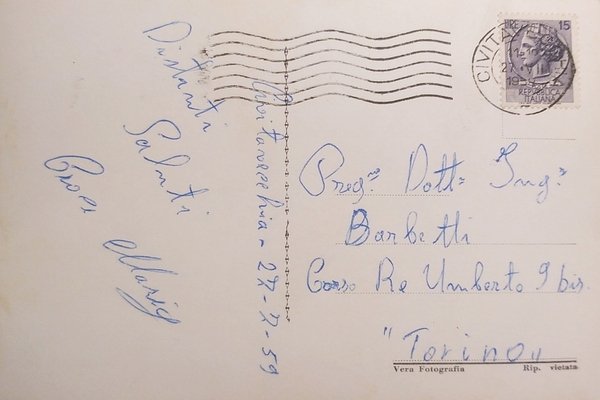 Distinti
Saluti
Civitavecchia - 27-7-59
POSTE 15
REPUBBLICA
ITALIANA
CIVITAVECCHIA
1959
Preg.mo Dott.re Ing.re
Barbetti
Corso Re Umberto 9 bis.
"Torino"
Vera Fotografia Rip. vietata